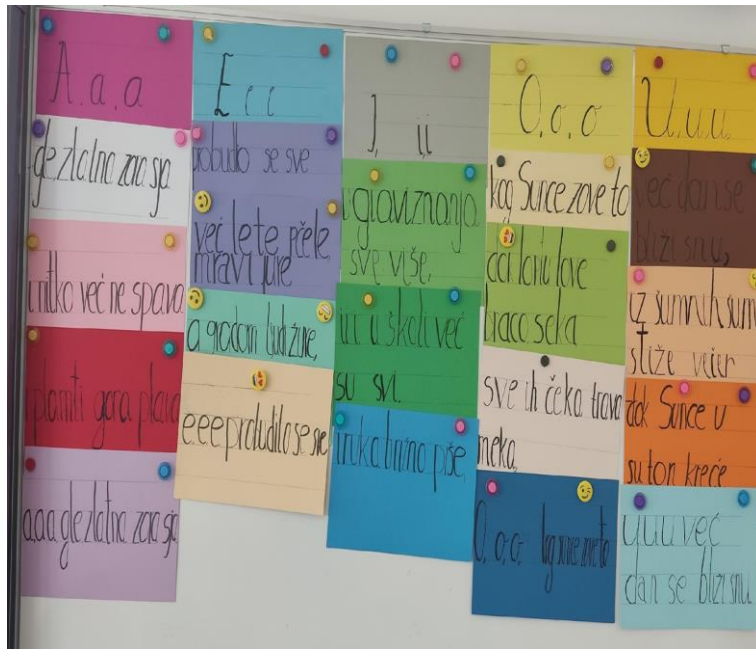 A. a. a
gle zlatna zora sja
i nitko već ne spava
i plamti gora plava
a.a.a gle zlatna zora sja
E e e
probudilo se sve
već lete pčele,
mravi jure
a gradom ljudi žure,
e.e.e probudilo se sve
I, i i
i glava znanja
sve više,
i u školi već
su svi.
i ruka brižno piše,
O. o. o
kog Sunce zove to
love
braco seka
sve ih čeka trava
meka,
O. o. o. kog sunce zove to
U. u. u.
već dan se
bliži snu,
iz šumnih šum
stiže večer
dok Sunce u
suton kreće
u u u već
dan se bliži snu